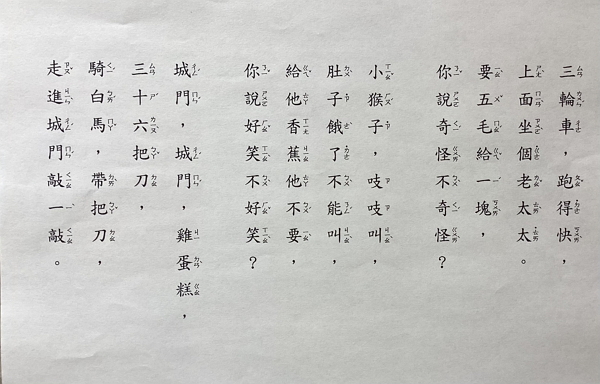 三輪車，跑得快，
上面坐個老太太。
要五毛給一塊，
你說奇怪不奇怪？
小猴子，吱吱叫，
肚子餓了不能叫，
給他香蕉他不要，
你說好笑不好笑？
城門，城門，雞蛋糕，
三十六把刀，
騎白馬，帶把刀，
走進城門敲一敲。